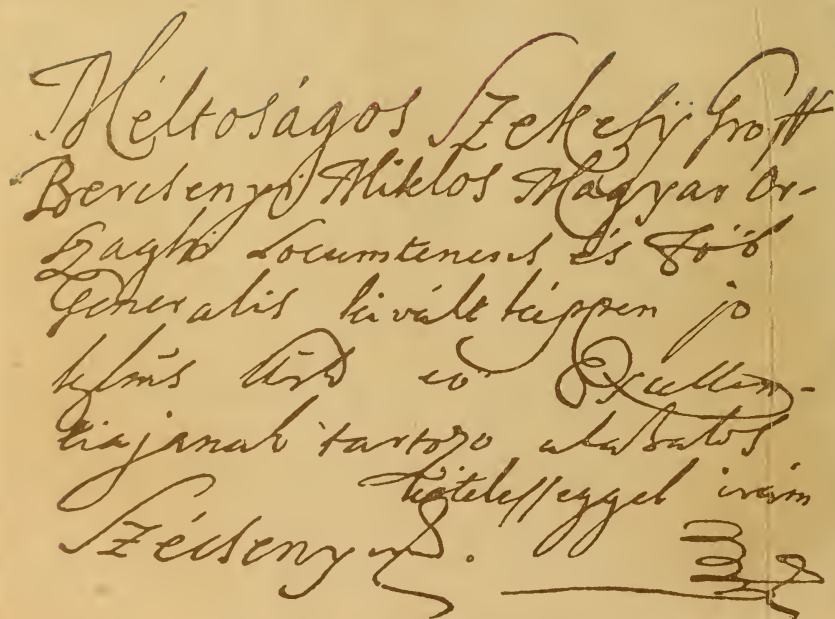 Méltoságos Szekely Groff
Bercsenyi Miklos Magyar Or-
szaghi Locumtenens és Föö
Generalis kivált képpen jo
kglmes Ură eö Excellen-
tiajanak tartozo alazatos
kötelesseggel irám
Szécseny